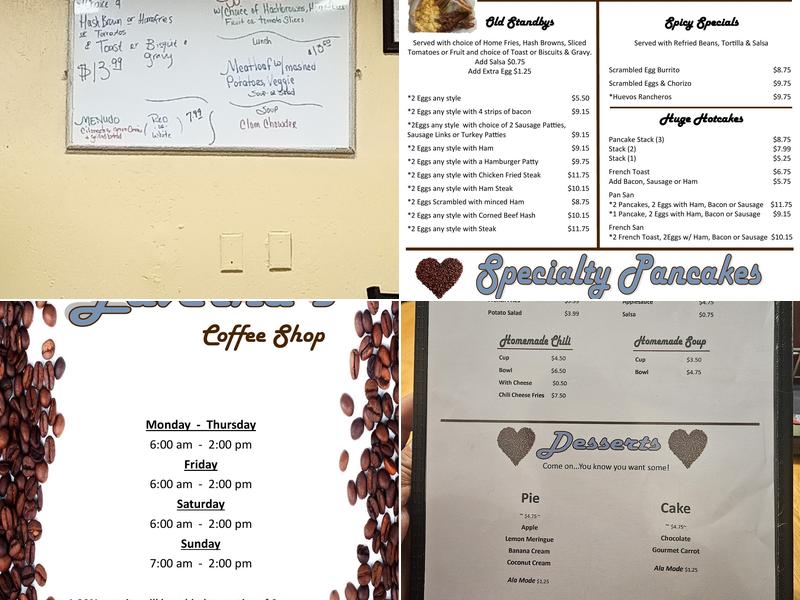 Hash Brown or Homefries
or Tomatos
& Toast or Biscuit &
gravy
$13.99
w/choice of Hashbrowns,
Fruit or tomato Slices
Lunch
$13.99
Meatloaf w/mashed
Potatoes, Veggie
Soup or Salad
Soup
Clam Chowder
MENUDO
Red
or
White
7.99
Old Standbys
Served with choice of Home Fries, Hash Browns, Sliced
Tomatoes or Fruit and choice of Toast or Biscuits & Gravy.
Add Salsa $0.75
Add Extra Egg $1.25
*2 Eggs any style $5.50
*2 Eggs any style with 4 strips of bacon $9.15
*2Eggs any style with choice of 2 Sausage Patties,
Sausage Links or Turkey Patties $9.15
*2 Eggs any style with Ham $9.15
*2 Eggs any style with a Hamburger Patty $9.75
*2 Eggs any style with Chicken Fried Steak $11.75
*2 Eggs any style with Ham Steak $10.15
*2 Eggs Scrambled with minced Ham $8.75
*2 Eggs any style with Corned Beef Hash $10.15
*2 Eggs any style with Steak $11.75
Spicy Specials
Served with Refried Beans, Tortilla & Salsa
Scrambled Egg Burrito $8.75
Scrambled Eggs & Chorizo $9.75
*Huevos Rancheros $9.75
Huge Hotcakes
Pancake Stack (3) $8.75
Stack (2) $7.99
Stack (1) $5.25
French Toast $6.75
Add Bacon, Sausage or Ham $5.75
Pan San
*2 Pancakes, 2 Eggs with Ham, Bacon or Sausage $11.75
*1 Pancake, 2 Eggs with Ham, Bacon or Sausage $9.15
French San
*2 French Toast, 2Eggs w/ Ham, Bacon or Sausage $10.15
Specialty Pancakes
Coffee Shop
Monday - Thursday
6:00 am - 2:00 pm
Friday
6:00 am - 2:00 pm
Saturday
6:00 am - 2:00 pm
Sunday
7:00 am - 2:00 pm
Potato Salad $3.99
Applesauce $4.75
Salsa $0.75
Homemade Chili
Cup $4.50
Bowl $6.50
With Cheese $0.50
Chili Cheese Fries $7.50
Homemade Soup
Cup $3.50
Bowl $4.75
Desserts
Come on...You know you want some!
Pie
~ $4.75~
Apple
Lemon Meringue
Banana Cream
Coconut Cream
Ala Mode $1.25
Cake
~ $4.75~
Chocolate
Gourmet Carrot
Ala Mode $1.25